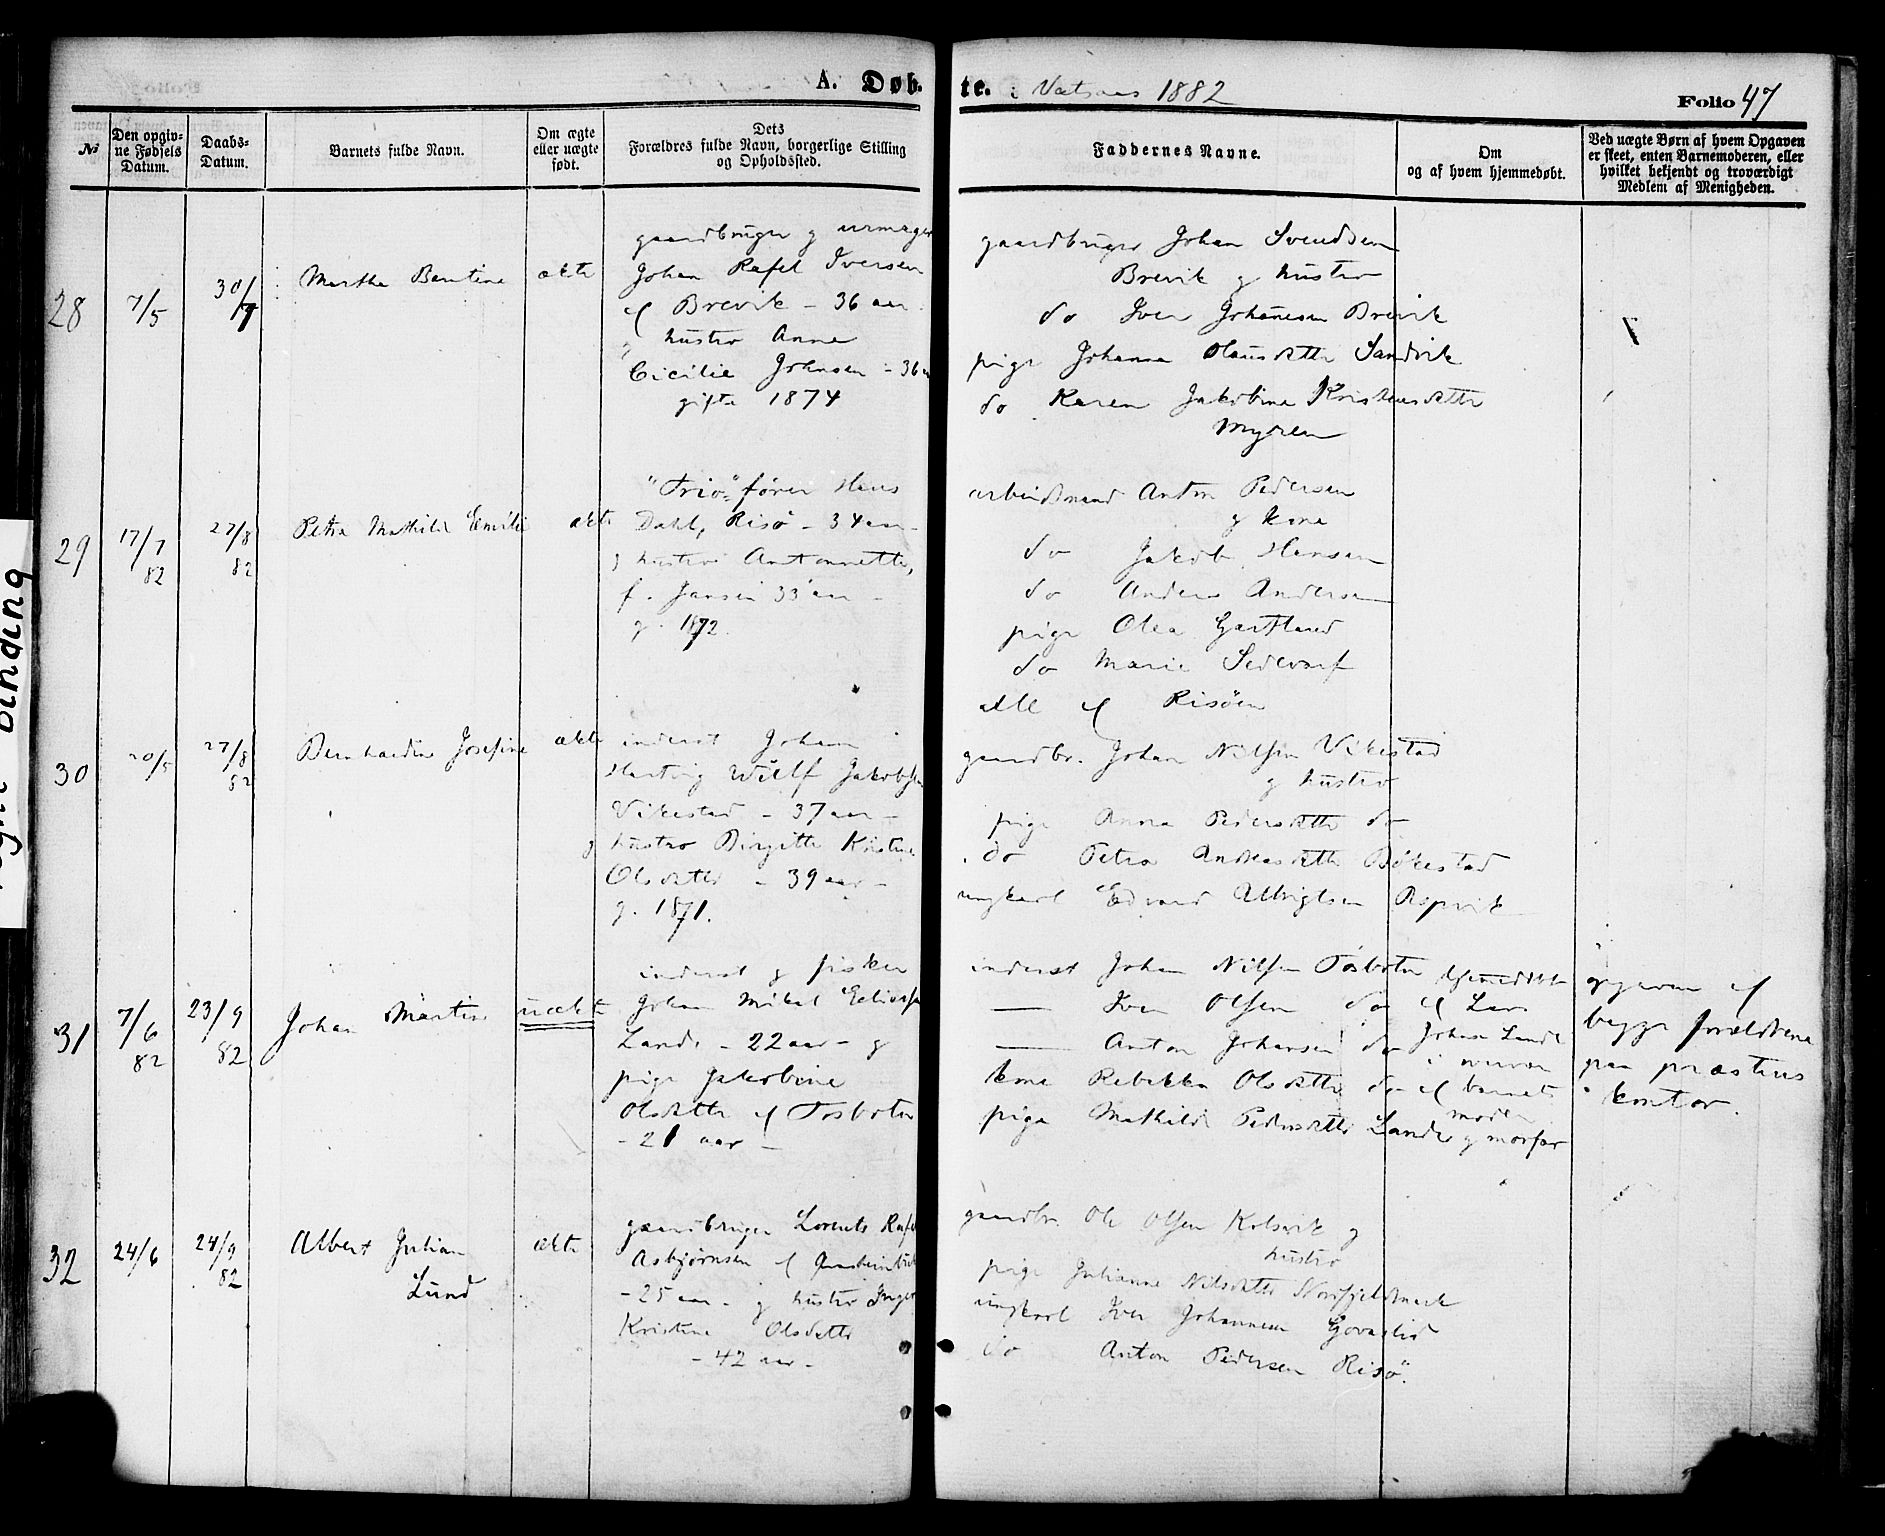 A. Døbte. Vatsaas 1882
Folio 47
№
Den opgivne Fødsels Datum.
Daabs-Datum.
Barnets fulde Navn.
Om ægte eller uægte født.
Dets Forældres fulde Navn, borgerlige Stilling og Opholdssted.
Faddernes Navne.
Om og af hvem hjemmedøbt.
Ved uægte Børn af hvem Opgaven er skeet, enten Barnemoderen, eller hvilket bekjendt og troværdigt Medlem af Menigheden.
28
7/5
30/7
Martha Bentine
ækte
gaardbruger g urmager
Johan Rafel Iversen
af Brevik - 36 aar.
g hustro Anna
Cicilie Johnsen - 36
gifte 1874
gaardbruger Johan Svendsen
Brevik g hustro
do Iver Johansen Brevik
pige Johanna Olausdatter Sandvik
do Karen Jakobine Kristensdatter
Myren
29
17/7 82
27/8 82
Petra Mathilde Emilie
ækte
"Trio"fører Hans
Dahl, Risö - 34 aar -
g hustro Antonnette,
f. Jansen 33 aar -
g. 1872.
arbeidsmand Anton Pedersen
g kone
do Jakob Hansen
do Anders Andersen
pige Olea
do Marie
alle af Risöen
30
20/5
27/8 82
Bernhardine Josefine
ækte
inderst Johan
Hartvig Jakobsen
Vikestad - 37 aar -
g hustro Birgitte Kristine
Olsdatter - 39 aar -
g. 1871.
gaardbr. Johan Nilsen Vikestad
g hustro
pige Anna Pedersdatter do
do Petra Andreasdatter Bökestad
ungkarl Edvard Ulrigtsen Aspvik
31
7/6 82
23/9 82
Johan Martin
uækte
inderst g fisker
Johan Mikal
Lande - 22 aar - g
pige Jakobine
Olsdatter af Tosbotn
- 21 aar -
inderst Johan Nilsen Tosbotn
— Iver Olsen do
— Anton Johansen do
kone Rebekka Olsdatter do
pige Mathilde Pedersdatter Lande
hjemmedöbt
af Lars
Johan Lande
i nærvær
af barnets
moder
g morfar
opgaven af
begge forældrene
paa præstens
kontor.
32
24/6
24/9 82
Albert Julian
Lund
ækte
gaardbruger Lorents Rafel
Asbjørnsen af
- 25 aar - g hustro Inger
Kristine Olsdatter
- 42 aar -
gaardbr. Ole Olsen Kolsvik g
hustro
pige Julianna Nilsdatter Norfjeldmark
ungkarl Iver Johannesen Govaslid
do Anton Pedersen Risö.